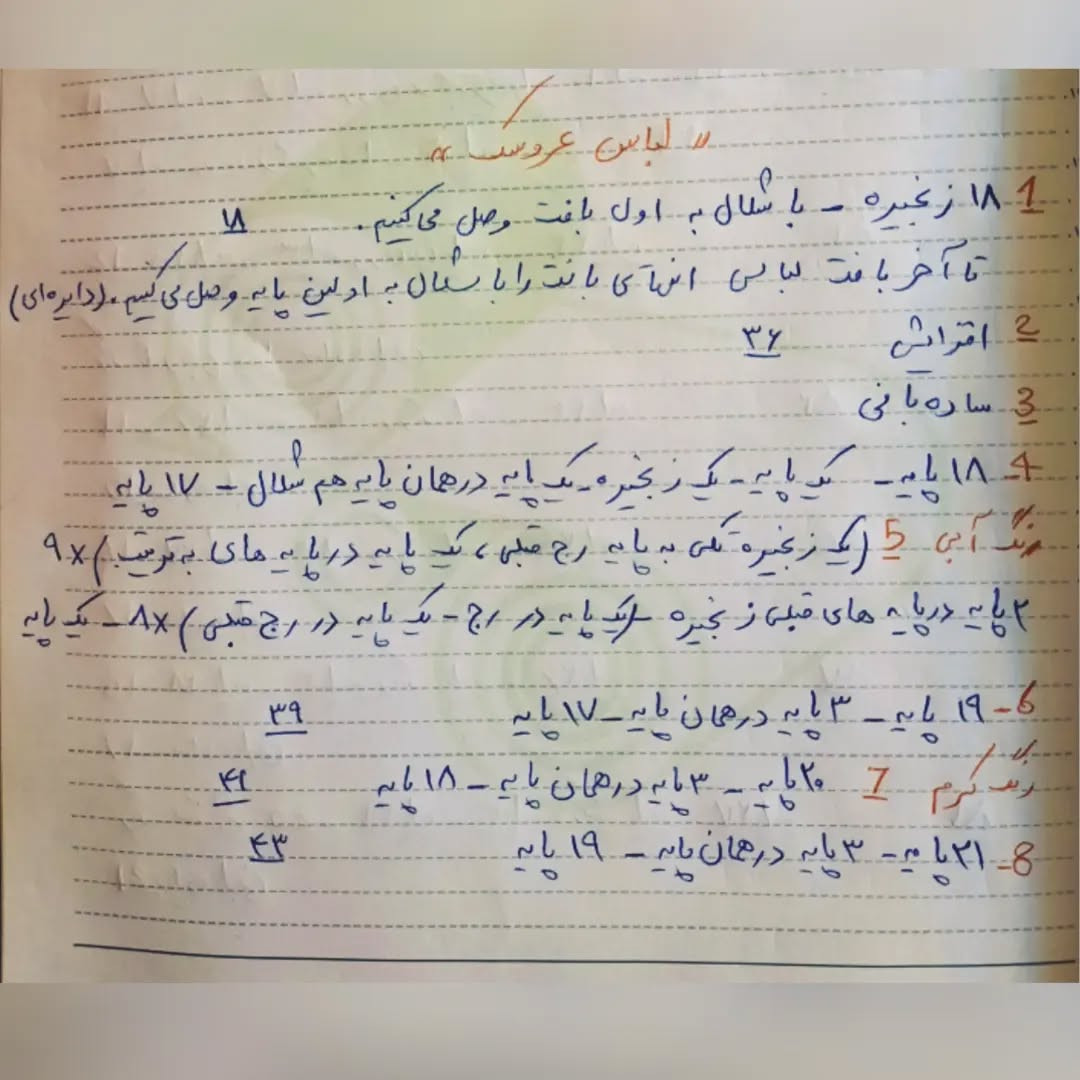 " لباس عروسک "
1 ۱۸ زنجیره - با شلال به اول بافت وصل می کنیم. ۱۸
تا آخر بافت لباس انتهای بافت را با شلال به اولین پایه وصل می کنیم. (دایره ای)
2 افزایش ۳۶
3 ساده بافی
4- ۱۸ پایه - یک پایه - یک زنجیره - یک پایه در همان پایه هم شلال - ۱۷ پایه
رنگ آبی 5 (یک زنجیره تکی به پایه رج قبلی، یک پایه در پایه های به ترتیب) ×۹
۲ پایه در پایه های قبلی زنجیره - (یک پایه در رج - یک پایه در رج قبلی) ×۸ - یک پایه
6- ۱۹ پایه - ۳ پایه در همان پایه - ۱۷ پایه ۳۹
رنگ کرم 7 ۲۰ پایه - ۳ پایه در همان پایه - ۱۸ پایه ۴۱
8- ۲۱ پایه - ۳ پایه در همان پایه - ۱۹ پایه ۴۳